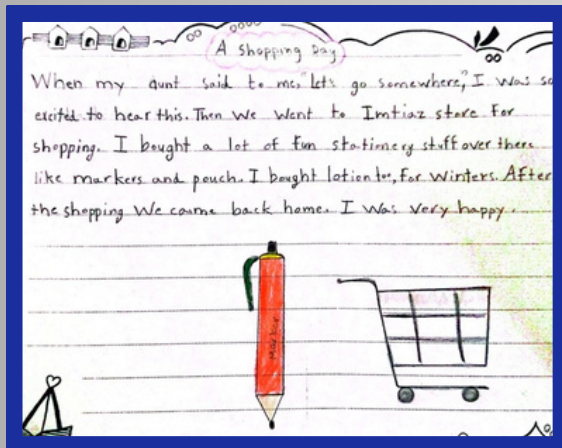 A Shopping Day
When my aunt said to me, "Let's go somewhere," I was so
excited to hear this. Then We Went to Imtiaz store for
shopping. I bought a lot of fun stationery stuff over there
like markers and pouch. I bought lotion too, for winters. After
the shopping We came back home. I was very happy.
Marker